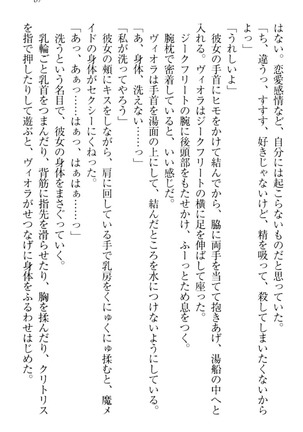 はない。恋愛感情など、自分には起こらないものだと思っていた。
「ち、違うっ、すすす、好きじゃないけど、精を吸って、殺してしまいたくないから
「うれしいよ」
彼女の手首にヒモをかけて結んでから、脇に両手を当てて抱きあげ、湯船の中へと
入れる。ヴィオラはジークフリートの横に足を伸ばして座った。
ジークフリートの腕に後頭部をもたせかけ、ふーっとため息をつく。
腕枕で密着していると、いい感じだ。
ヴィオラは手首を湯面の上にして、結んだところを水につかないようにしている。
「あ、身体、洗えない……っ」
「私が洗ってやろう」
彼女の頬にキスをしながら、肩に回している手で乳房をくにゅくにゅすると、魔メ
イドの身体がセクシーにくねった。
「あっ、あぁっ……はぁっ、はぁはぁ……っ」
洗うという名目で、彼女の身体をまさぐっていく。
乳輪ごと乳首をつまんだり、背筋に指先を滑らせたり、胸を揉んだり、クリトリス
を指で押したりして遊ぶと、ヴィオラがせつなげに身体をふるわせはじめた。